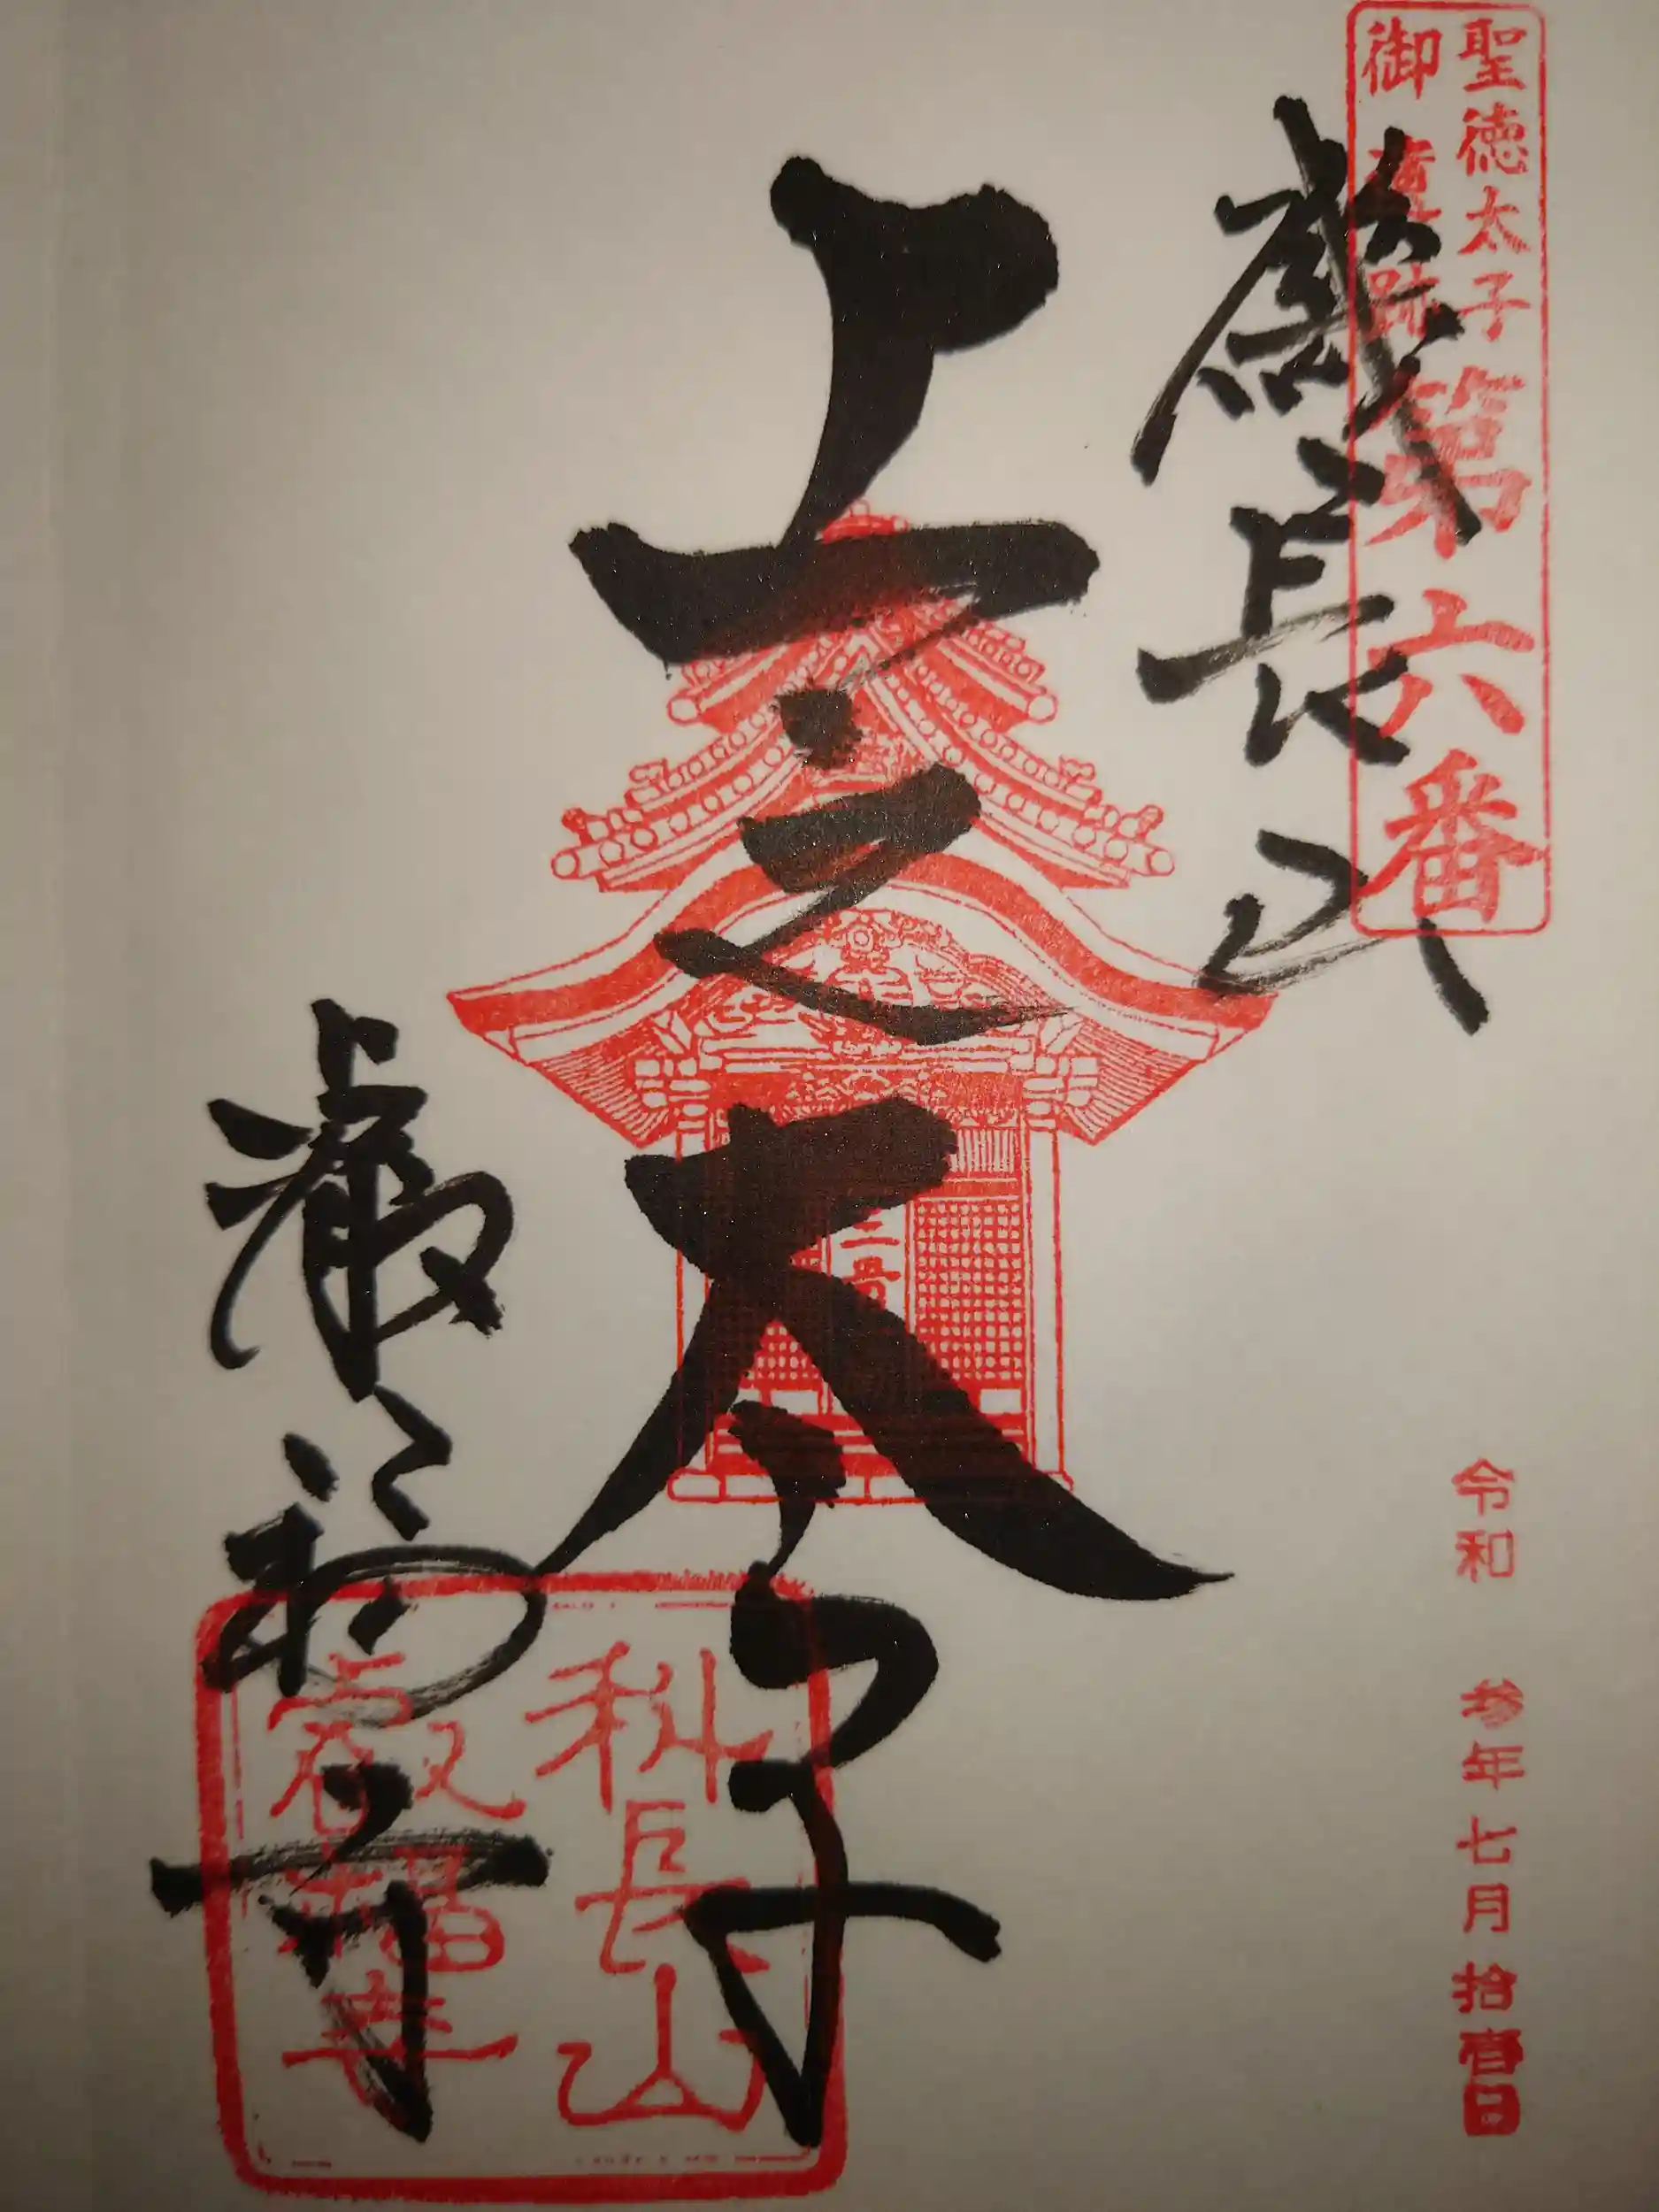 聖徳太子
御遺跡
第六番
磯長山
上之太子
叡福寺
科長山
叡福寺
令和 参年七月拾壹日